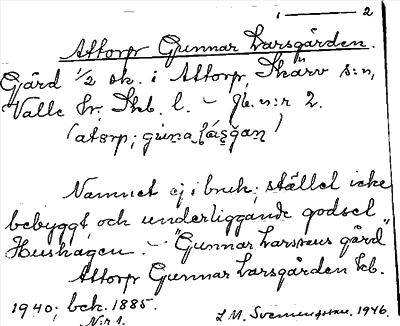 1 — 2
Attorp Gunnar Larsgården.
Gård 1/2 sk. i Attorp, Skärv s:n,
Valle hr, Skb. l. – Jb. n:r 2.
Namnet ej i bruk; stället icke
bebyggt och underliggande godset
Hushagen. – "Gunnar Larsgård"
Attorp Gunnar Larsgården kb.
1940; bek. 1885.
N:r 1. 1946.